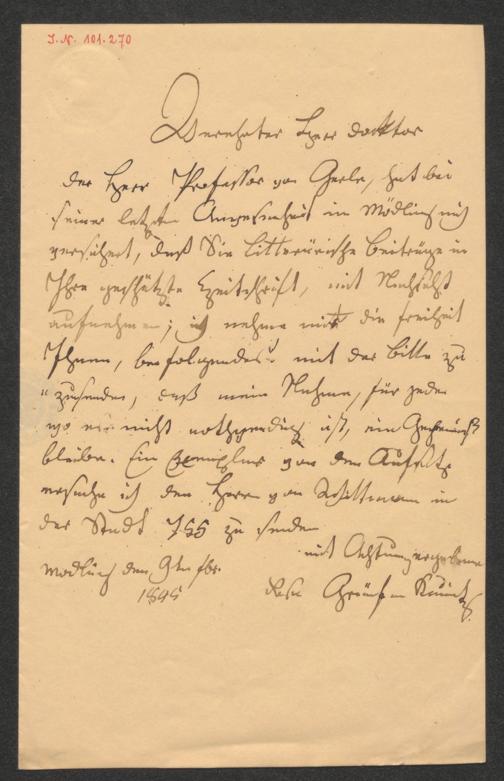 I.N. 101.270
Verehrter Herr Docktor
der Herr Professor von Gerle, hat bei
seiner letzten Anwesenheit in Mödling mich
versichert, daß Sie litterärische Beiträge in
Ihre geschätzte Zeitschrift, mit Nachsicht
aufnehmen; ich nehme mir die Freiheit
Ihnen, beifolgendes mit der Bitte zu
zusenden, daß mein Nahme, für jeden
wo er nicht nothwendig ist, ein Geheimniß
bleibe. Ein Exemplar von dem Aufsatz
ersuche ich den Herrn von in
der Stadt 755 zu senden
mit Achtung ergebene
Mödling den 9ten
1845
Gräfin